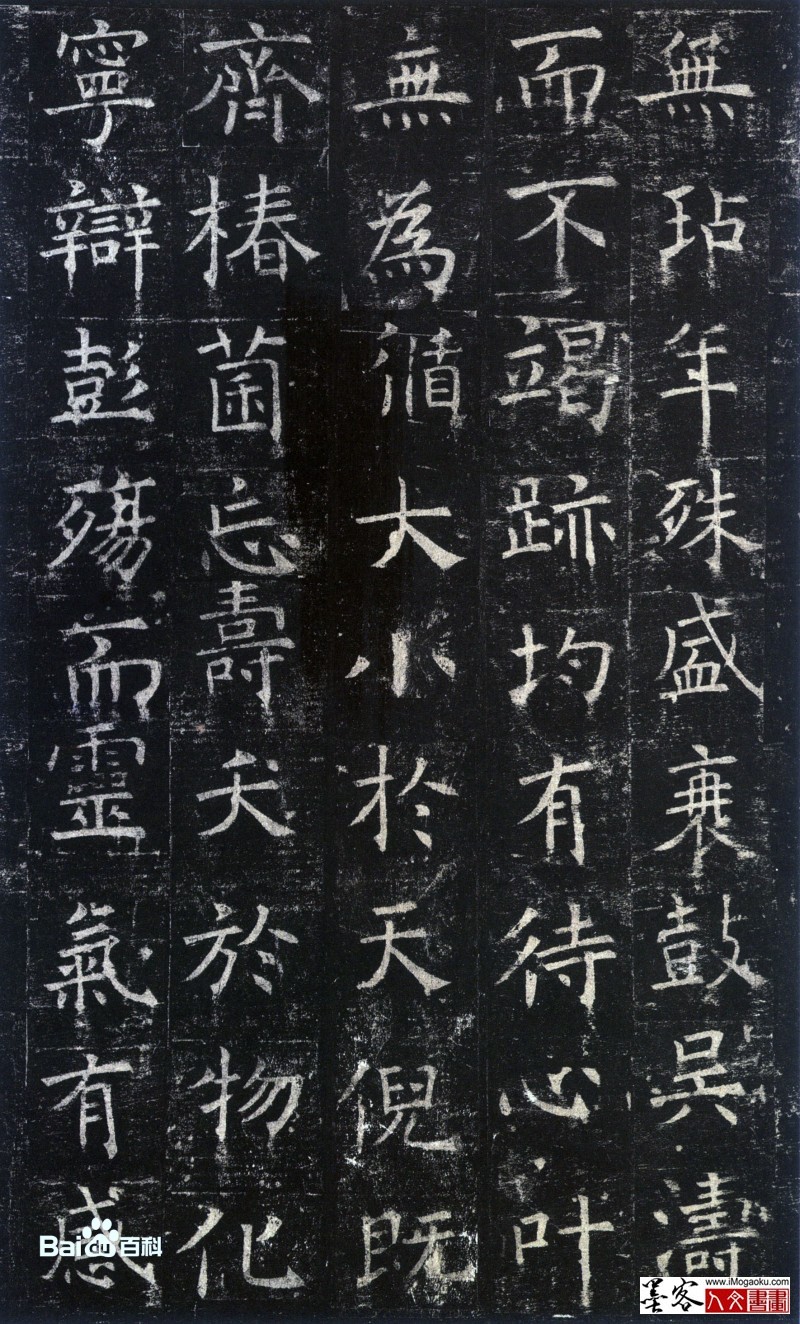 無玷年殊盛衰鼓吴濤
而不竭跡均有待心叶
無為循大小於天倪既
齊椿菌忘壽夭於物化
寧辯彭殤而靈氣有感
Bai du 百科
墨客
www.iMogaoku.com
人文書畫